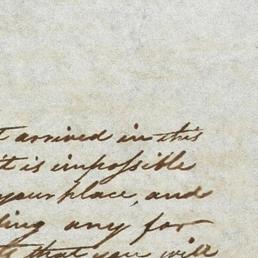 t arrived in this
it is impossible
your place, and
ding any for
that you will